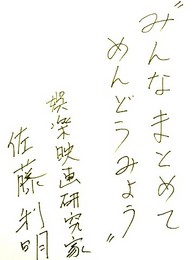 〝みんなまとめて
めんどうみよう〟
娯楽映画研究家
佐藤利明